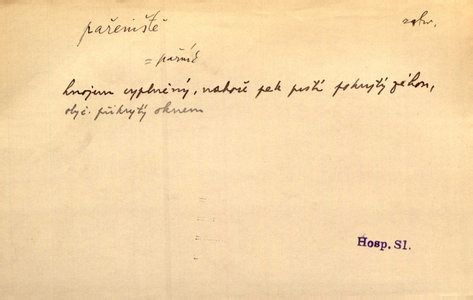 pařeniště
= pařník
hnojem vyplněný, nahoře pak prstí pokrytý záhon,
obyč. přikrytý oknem
Hosp. Sl.